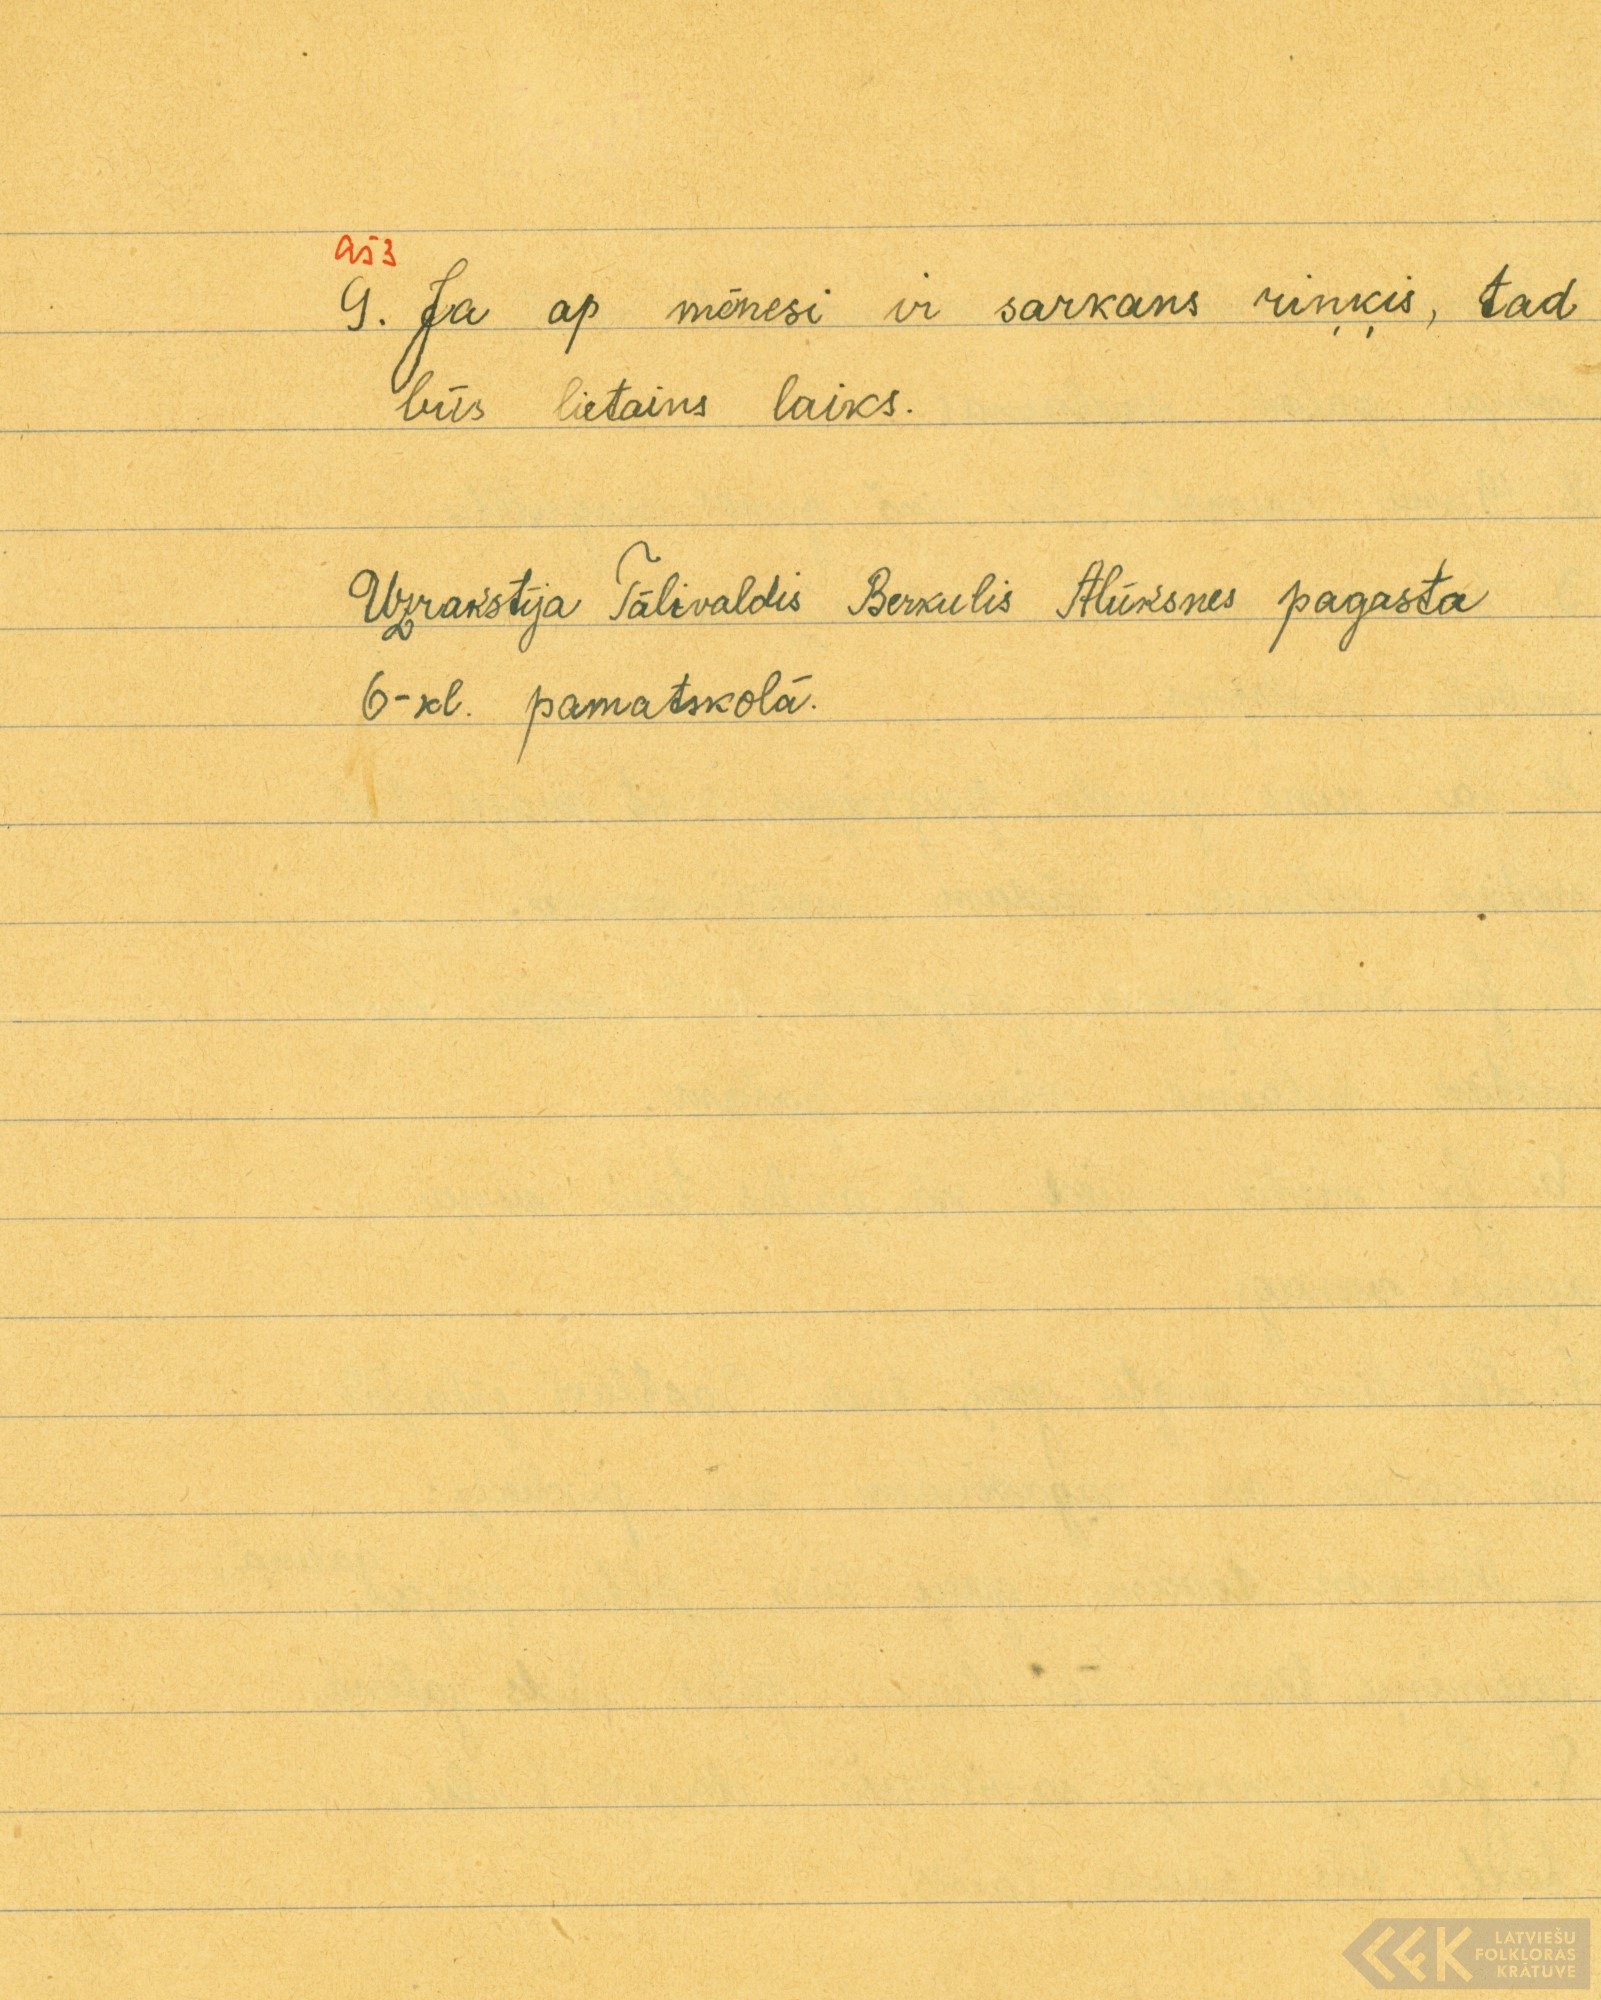 953
9. Ja ap mēnesi ir sarkans riņķis, tad
būs lietains laiks.
Uzrakstīja Tālivaldis Berkulis Alūksnes pagasta
6-kl. pamatskolā.
LATVIEŠU
FOLKLORAS
KRĀTUVE